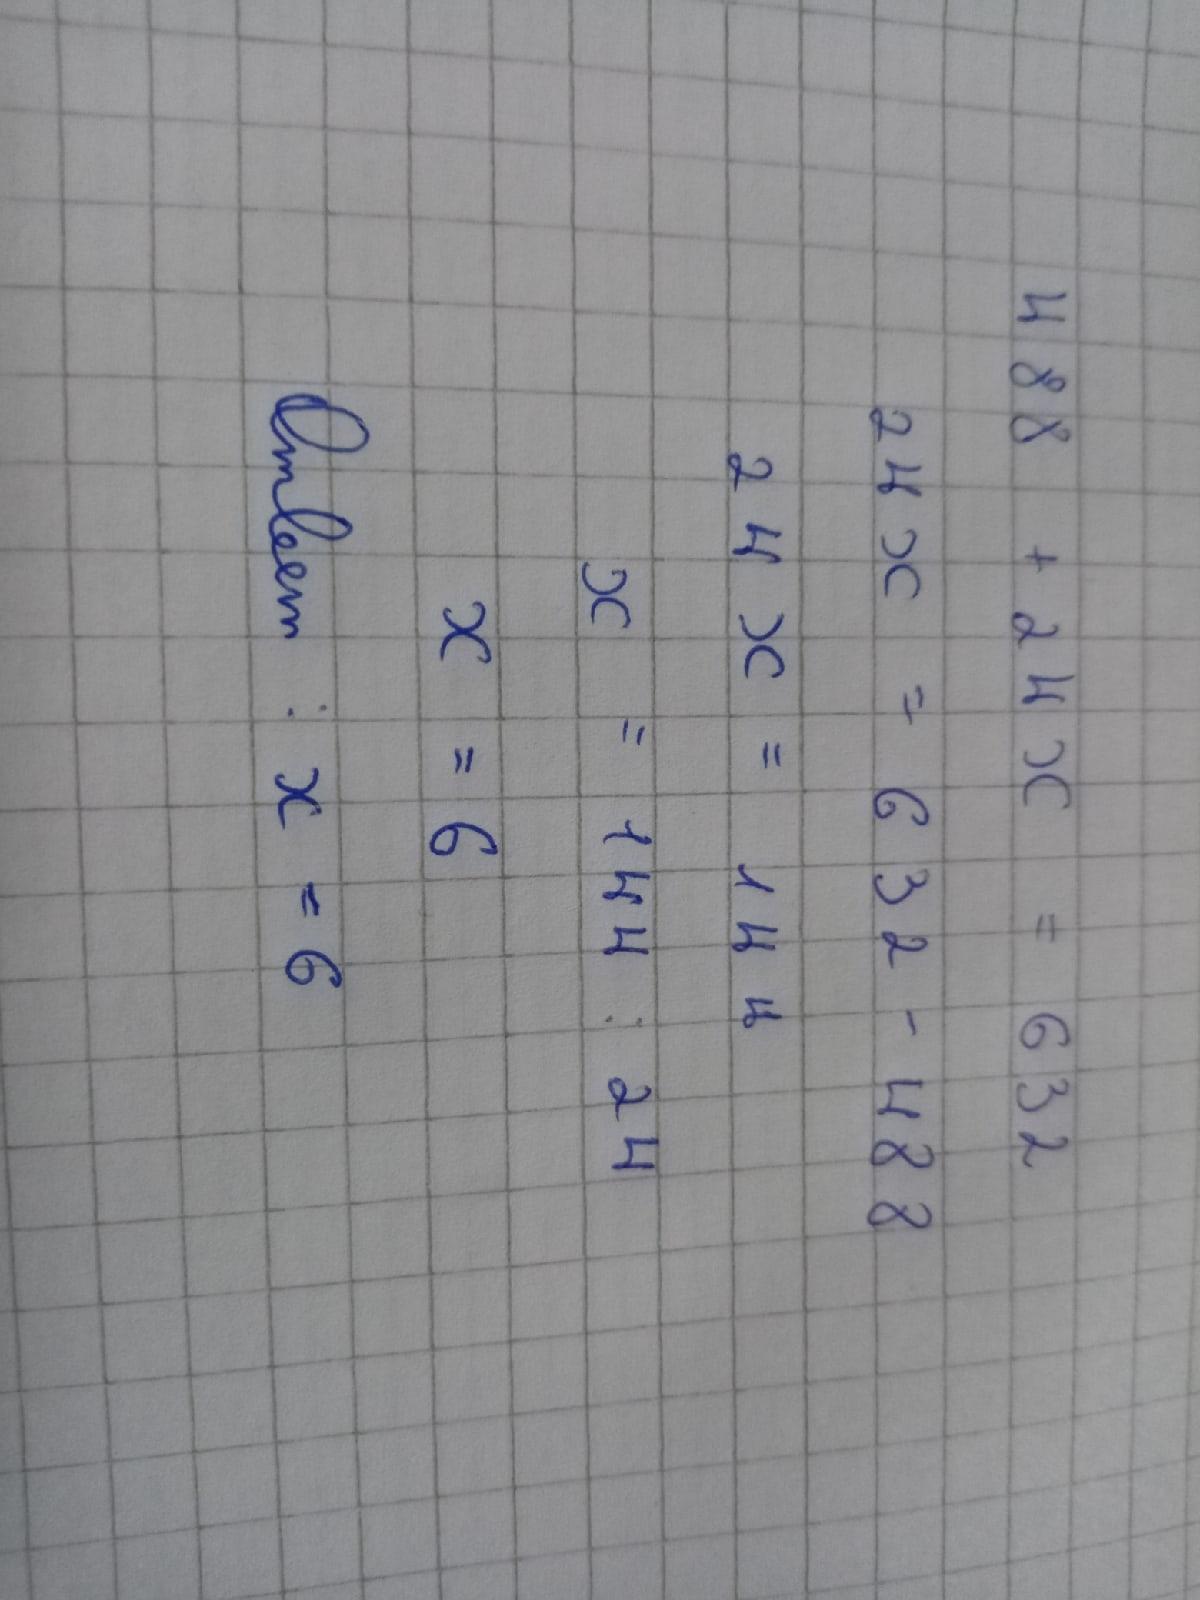 488 + 24x = 632
24x = 632 - 488
24x = 144
x = 144 : 24
x = 6
Ответ : x = 6